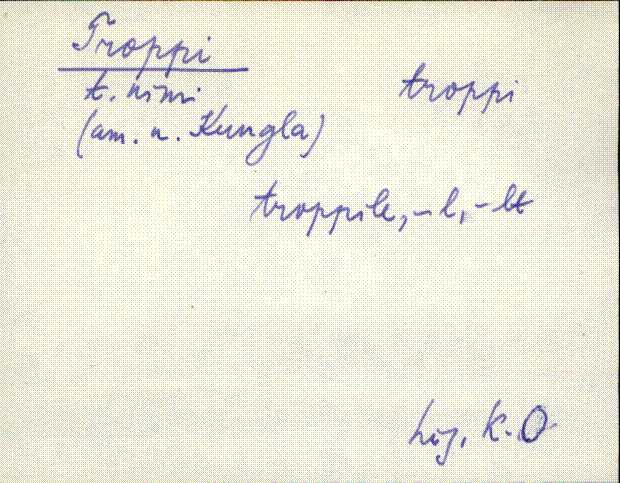 Troppi
troppi
t. nimi
(am. n. Kungla)
troppile, -l, -lt
K. O